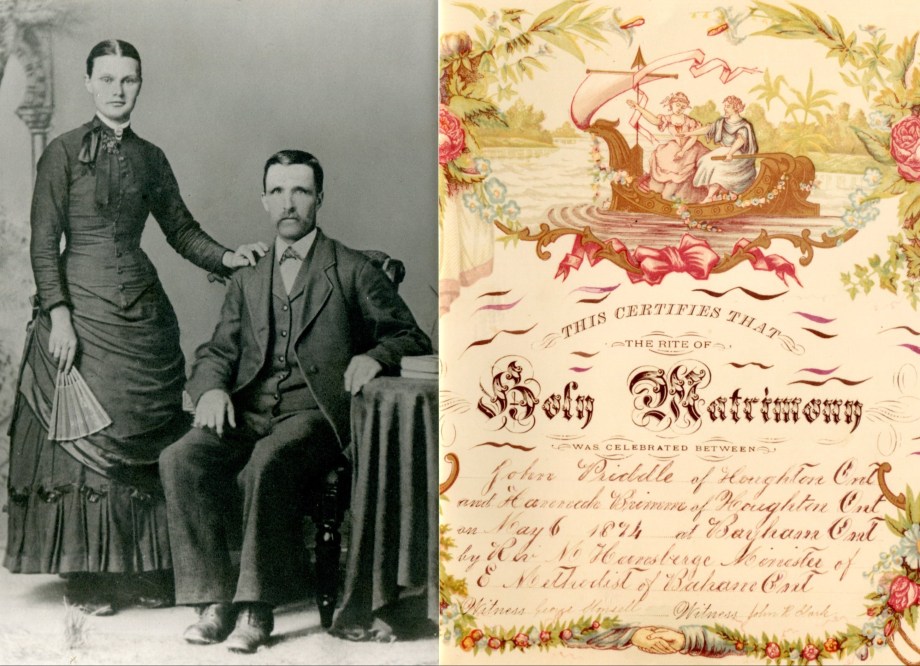 THIS CERTIFIES THAT
THE RITE OF
Holy Matrimony
WAS CELEBRATED BETWEEN
John Priddle of Houghton Ont
and Hannah Brimme of Houghton Ont
on May 6 1874 at Bayham Ont
by Rev Minister of
E Methodist of Ont
Witness Witness John